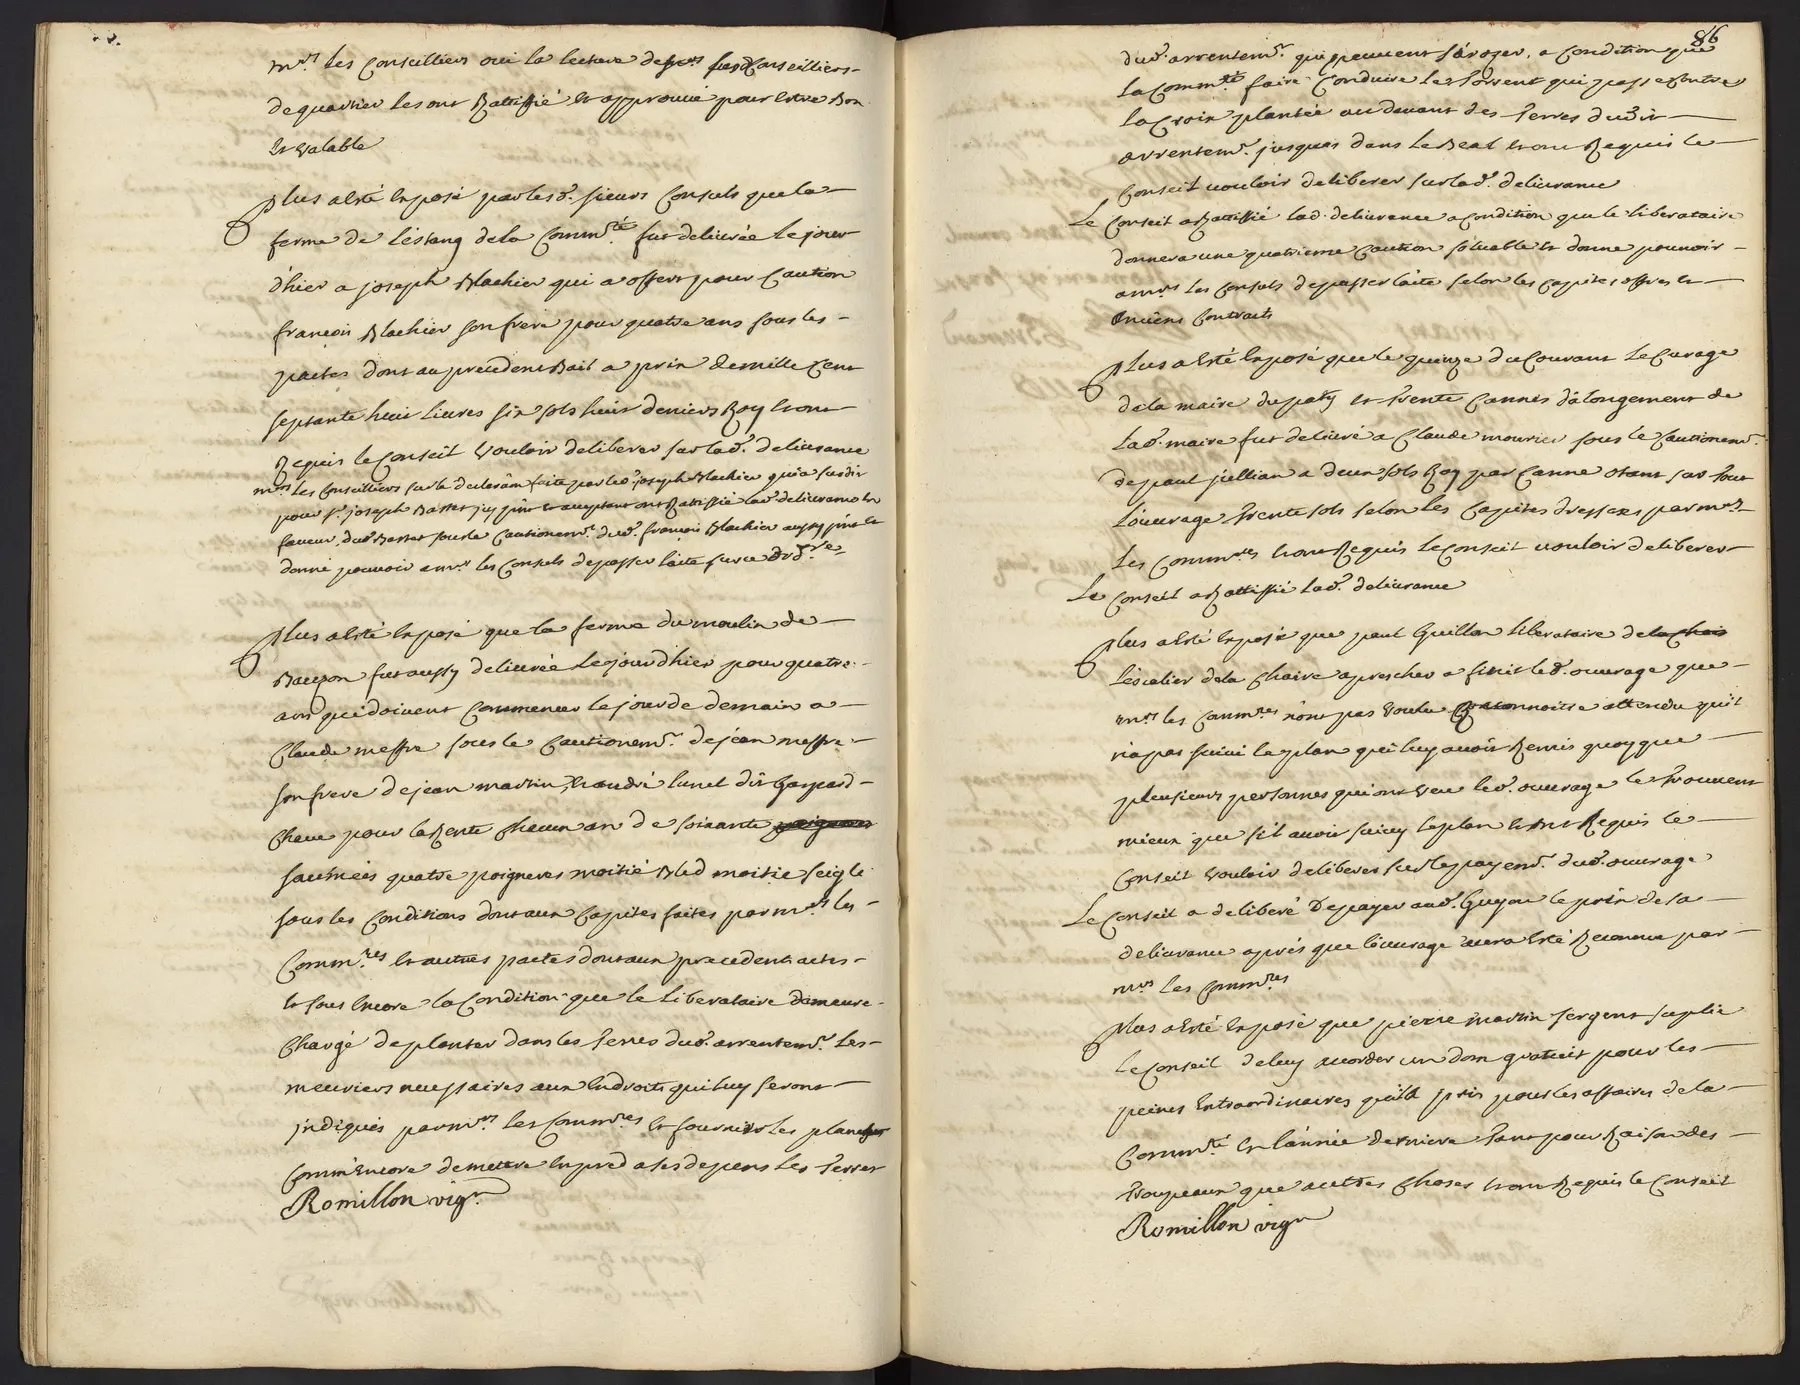 mrs les Conseilliers oui la lecture desd. Conseilliers
de quartier les ont Rattiffié et approuvé pour estre Bon
et valable
Plus a esté exposé par lesd. sieurs Consuls que la
ferme de l'estang de la Commté fut delivrée le jour
d'hier a joseph Blachier qui a offert pour Caution
francois Blachier son frere pour quatre ans sous les
pactes dont au precedent Bail a prix de mille Cent
septante huit livres six sols huit deniers Roy et ont
Requis le Conseil vouloir deliberer sur lad. delivrance
mrs les Conseilliers sur la declaraon faite par led. joseph Blachier qu'a surdit
pour sr joseph Basset icy pnt et acceptant ont Rattiffié lad. delivrance en
faveur dud. Basset sous le Cautionemt dud. francois Blachier aussy pnt et
donné pouvoir a mrs les Consuls de passer l'acte sur ce
Plus a esté exposé que la ferme du moulin de
Bauzon fut aussy delivrée le jour d'hier pour quatre
ans qui doivent Commencer le jour de demain a
Claude meffre sous le Cautionemt de jean meffre
son frere de jean martin, et andré lunel dit gaspard
Chave pour la Rente chacun an de soixante poigneres
saumées quatre poigneres moitié Bled moitié seigle
sous les Conditions dont aux Capites faites par mrs les
Commres et autres pactes dont aux precedents actes
et sous encore la Condition que le liberataire demeure
Chargé de planter dans les terres dud. arrentemt les
meuriers necessaires aux endroits qui luy seront
indiqués par mrs les Commres et fournir les plançons
Comm'encore de mettre en pred a ses depens les terres
Romillon vigr
86
dud. arrentemt qui peuvent s'aroser, a Condition que
la Commté faire Conduire le torrent qui passe Contre
la Croix plantée au devant des terres dudit
arrentemt jusques dans le Beal et ont Requis le
Conseil vouloir deliberer sur lad. delivrance
Le Conseil a Rattiffié lad. delivrance a Condition que le liberataire
donnera une quatrieme Caution solvable et donne pouvoir
a mrs les Consuls de passer l'acte selon les Capites offres et
enciens Contracts
Plus a esté exposé que le quinze du Courant le Curage
de la maire du paty et trente Cannes d'alongement de
lad. maire fut delivré a Claude mourier sous le Cautionemt
de paul jullian a deux sols Roy par Canne otant sur tout
l'ouvrage trente sols selon les Capites dressées par mrs
les Commres et ont Requis le Conseil vouloir deliberer
Le Conseil a Rattiffié lad. delivrance
Plus a esté exposé que paul Guillon liberataire de la Chais
l'escalier de la Chaire a prescher a finit led. ouvrage que
mrs les Commres n'ont pas voulu Reconnoitre attendu qu'il
n'a pas suivi le plan qu'il luy avoit Remis quoy que
plusieurs personnes qui ont veu led. ouvrage le trouvent
mieux que s'il avoit suivy le plan et ont Requis le
Conseil vouloir deliberer sur le payemt dud. ouvrage
Le Conseil a deliberé de payer aud. Guyon le prix de sa
delivrance aprés que l'ouvrage aura esté Reconnu par
mrs les Commres
Plus a esté exposé que pierre martin sergent suplie
le Conseil de luy acorder un don gratuit pour les
peines extraordinaires qu'il a pris pour les affaires de la
Commté en l'année derniere tant pour Raison des
troupeaux que autres choses et ont Requis le Conseil
Romillon vigr